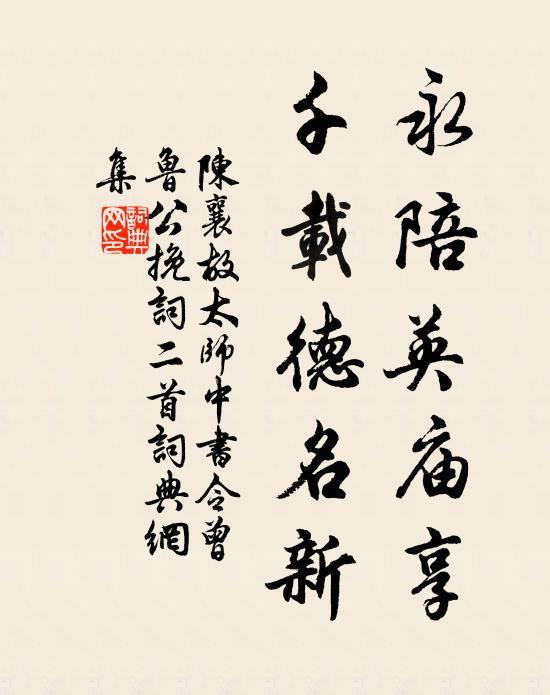 永陪英庙享
千載德名新
陳襄故太師中書令曾
魯公挽詞二首詞典網
集
詞典
网印